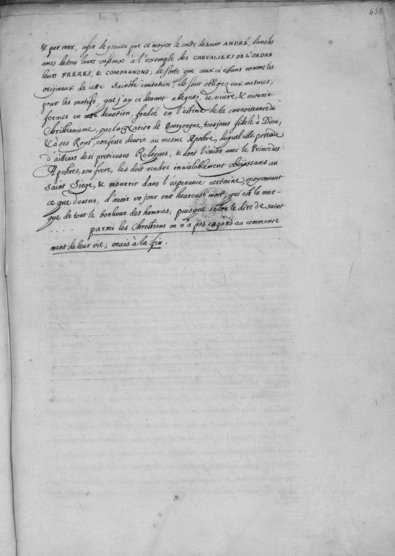 458
& par mer, afin de graver par ce moyen le culte de saint ANDRÉ, dans les
ames de tous leurs vassaux à l'exemple des CHEVALIERS DE L'ORDRE
leurs FRERES, & COMPAGNONS; de sorte que ceux ci estans comme les
originaux de cette sainte imitation, ils sont obligez eux mesmes,
pour les motifs, que j'ay ci devant allegués, de vivre, & mourir
fermes en cette devotion, fondée en l'estime de la constance du
Christianisme, que la Nation de Bourgogne, tousjours fidele à Dieu,
& à ses Roys, confesse devoir au mesme Apostre, duquel elle possede
d'ailleurs de si pretieuses Reliques, & dont l'union avec le Prince des
Apostres, son frere, les doit rendre inviolablement obeissans au
Saint Siege, & mourir dans l'esperance certaine moyennant
ce que dessus, d'avoir un jour une heureuse mort, qui est la mar-
que de tout le bonheur des hommes, puisque selon le dire de saint
.... parmi les Chrestiens on n'a pas egard au commence
ment de leur vie; mais à la fin.